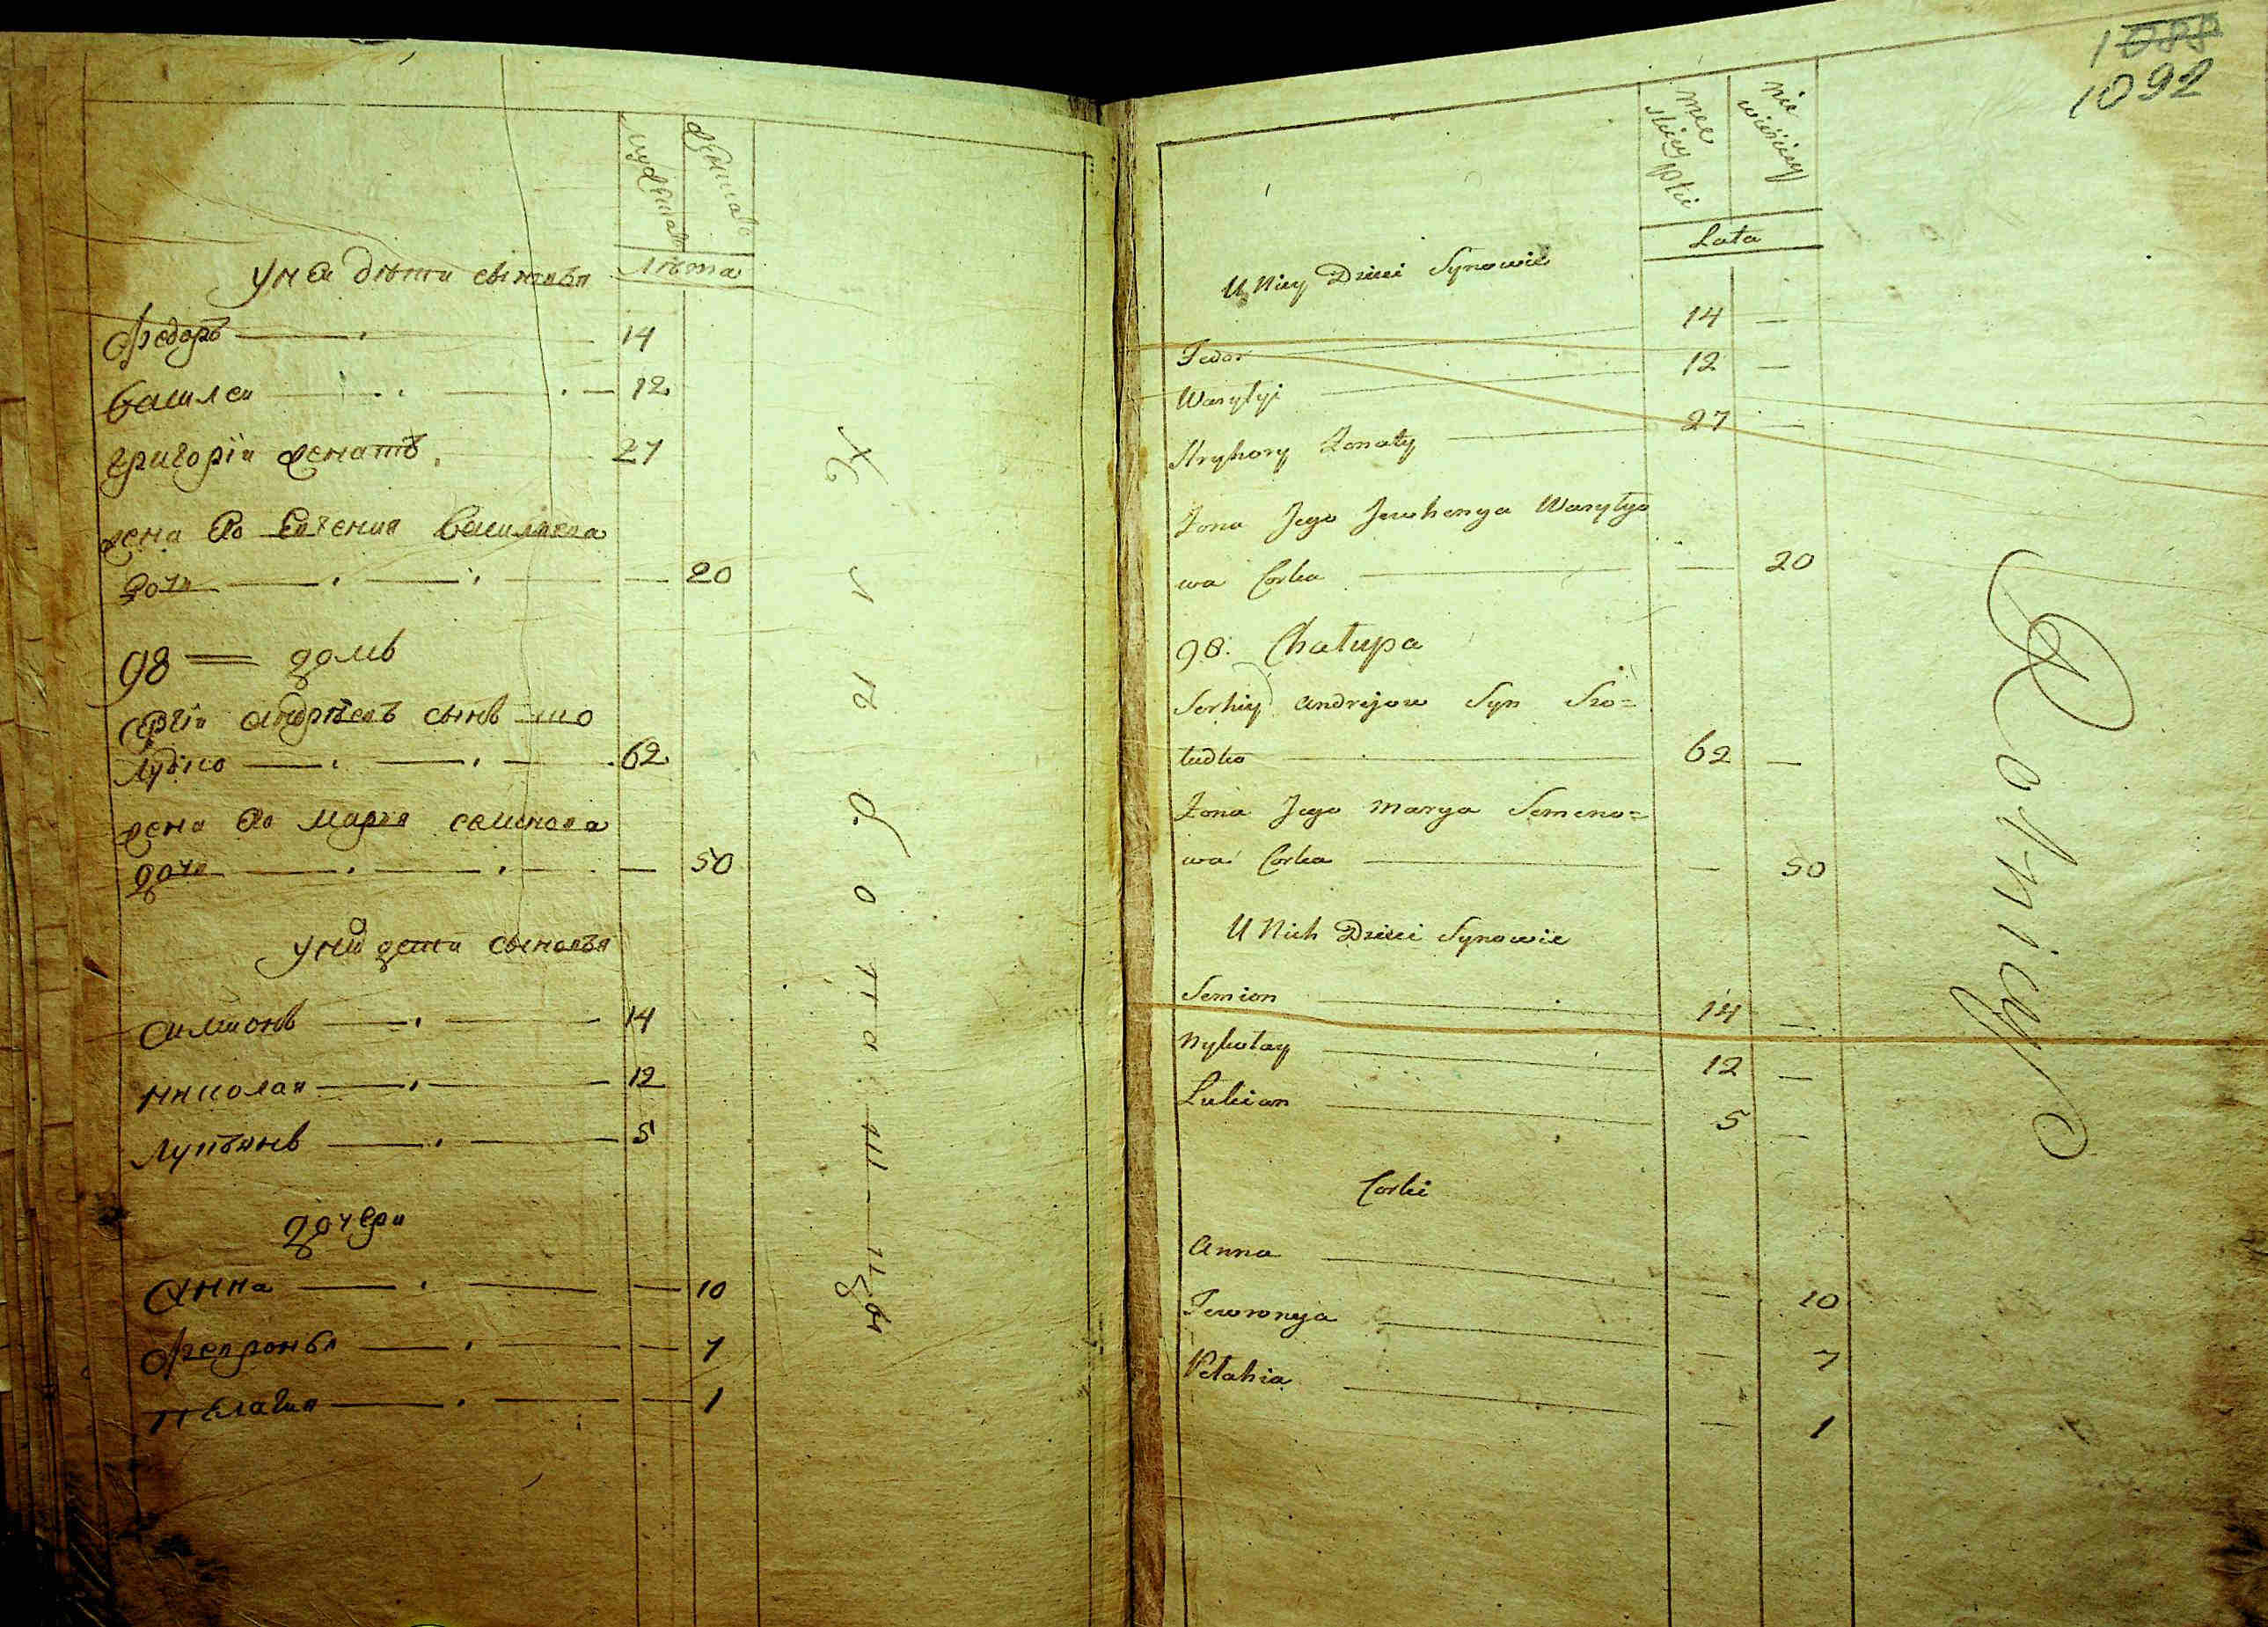 мужеска
женска
Лѣта
У нея дѣти сыновья
Федоръ — 14
Василей — 12
Григорій женатъ. 27
жена его Евгения Васильева
дочь — — 20
98 = домъ
Сергій Андрѣевъ сынъ Шо
лудко — 62
жена его Мария Семенова
дочь — — 50
У них дети сыновья
Симионъ — 14
Николай — 12
Лукьянъ — 5
дочери
Анна — — 10
Февронья — — 7
Пелагия — — 1
1088
1092
męzkiey płci
niewieściey
Lata
U Niey Dzieci Synowie
Fedor — 14 —
Wasylyi — 12 —
Hryhory Żonaty — 27 —
Żona Jego Jewhenya Wasylyo
wa Corka — — 20
98. Chałupa
Serhiy Andrejow Syn Szo=
łudko — 62 —
Żona Jego Marya Semeno=
wa Corka — — 50
U Nich Dzieci Synowie
Semion — 14 —
Nykołay — 12 —
Lukian — 5 —
Corki
Anna — — 10
Fewronya — — 7
Pełahia — — 1
Rolnicy